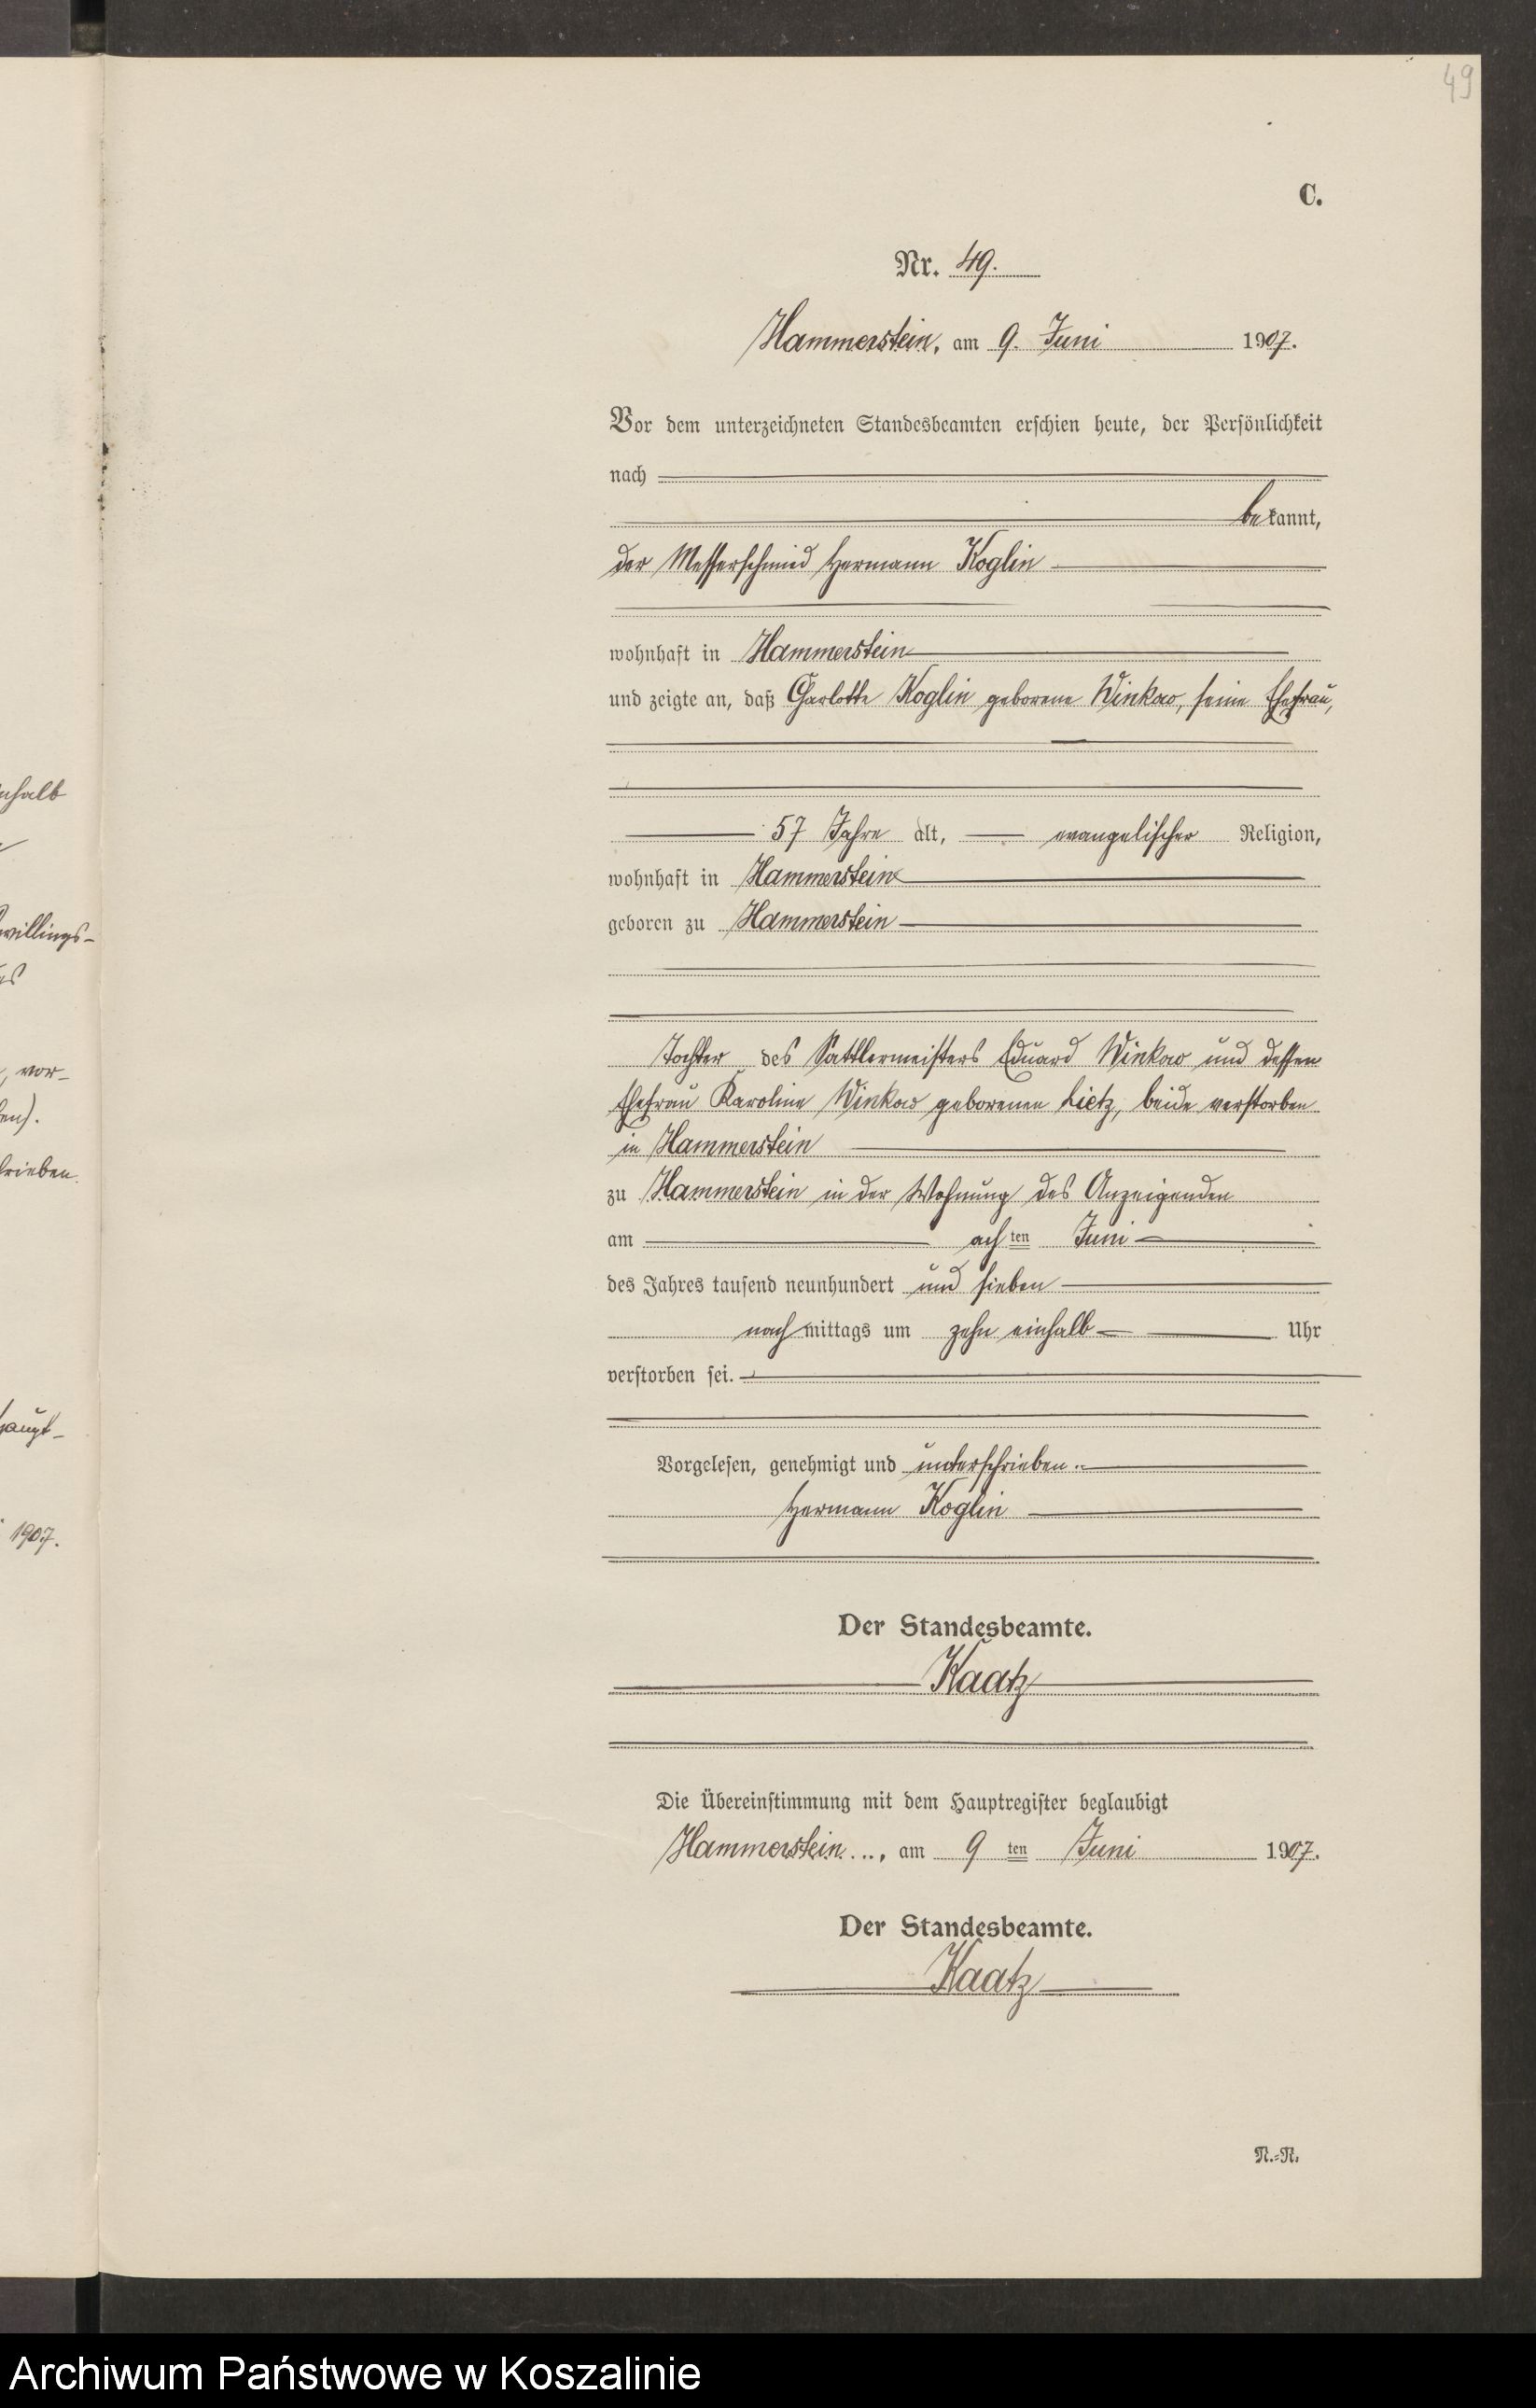 49
C.
Nr. 49.
Hammerstein, am 9. Juni 1907.
Vor dem unterzeichneten Standesbeamten erschien heute, der Persönlichkeit
nach
bekannt,
der Messerschmied Hermann Koglin
wohnhaft in Hammerstein
und zeigte an, daß Charlotte Koglin geborene Winkow, seine Ehefrau,
57 Jahre alt, evangelischer Religion,
wohnhaft in Hammerstein
geboren zu Hammerstein
Tochter des Sattlermeisters Eduard Winkow und dessen
Ehefrau Karoline Winkow geborenen Lietz, beide verstorben
in Hammerstein
zu Hammerstein in der Wohnung des Anzeigenden
am achten Juni
des Jahres tausend neunhundert und sieben
nachmittags um zehn einhalb Uhr
verstorben sei.
Vorgelesen, genehmigt und unterschrieben.
Hermann Koglin
Der Standesbeamte.
Kaatz
Die Übereinstimmung mit dem Hauptregister beglaubigt
Hammerstein, am 9ten Juni 1907.
Der Standesbeamte.
Kaatz
N.=N.
1907.
Archiwum Państwowe w Koszalinie